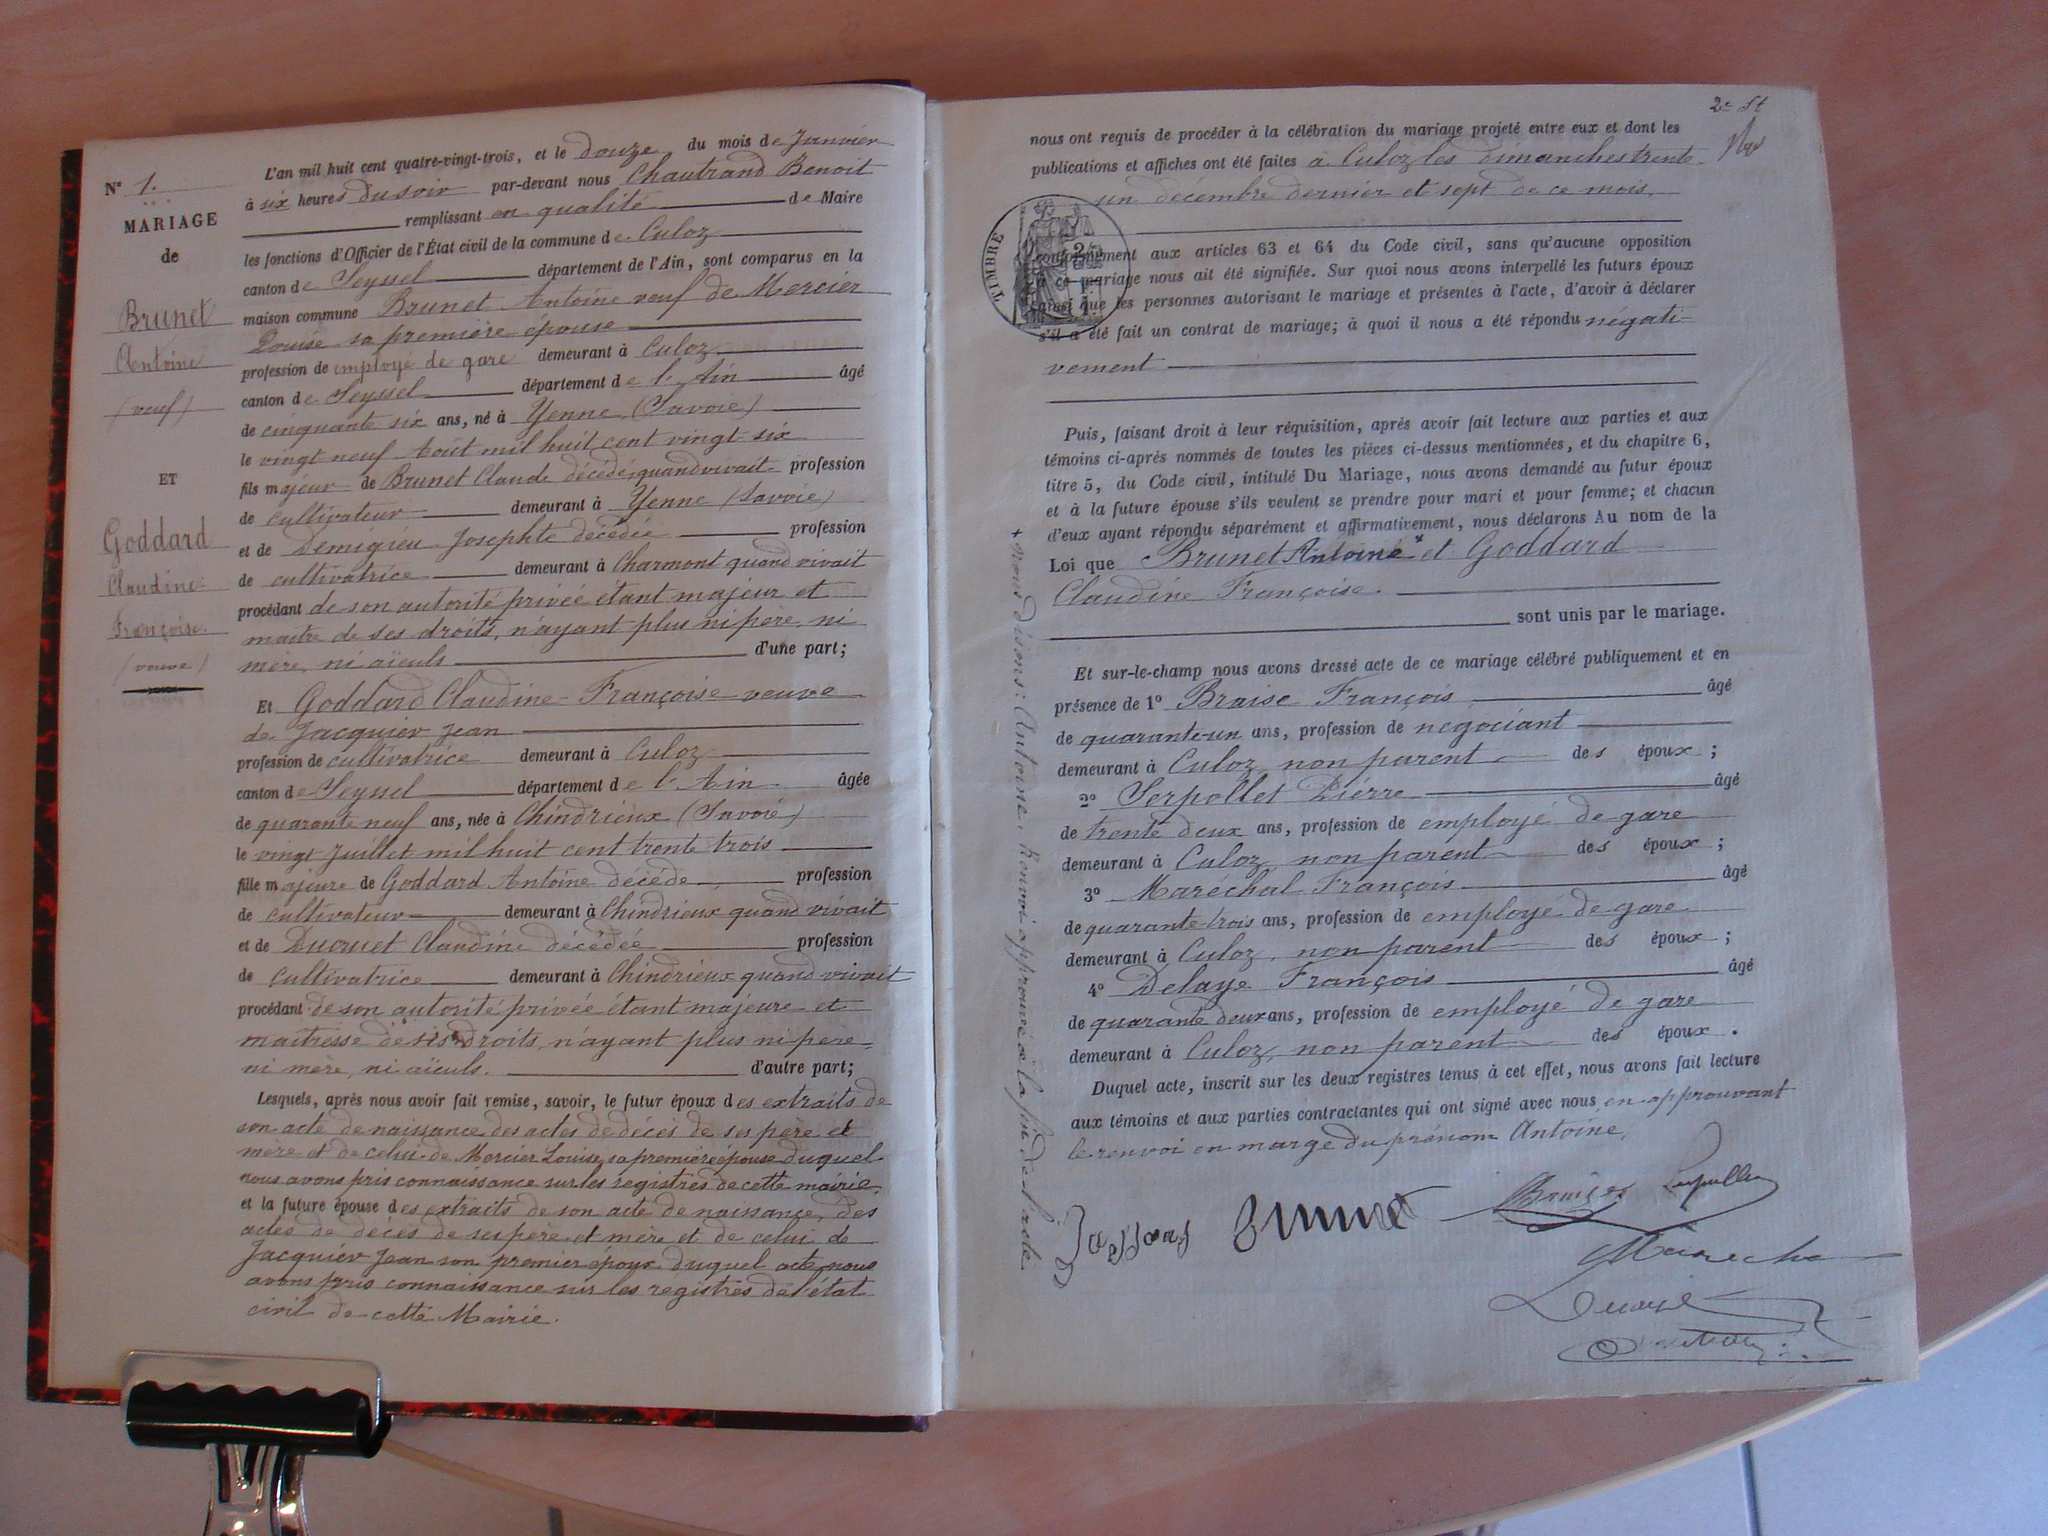 N° 1.
MARIAGE
de
Brunet
Antoine
(veuf)
ET
Goddard
Claudine
Françoise.
(veuve)
L'an mil huit cent quatre-vingt-trois, et le douze du mois de Janvier
à six heures du soir par-devant nous Chautrand Benoit
remplissant en qualité de Maire
les fonctions d'Officier de l'État civil de la commune de Culoz
canton de Seyssel département de l'Ain, sont comparus en la
maison commune Brunet Antoine veuf de Mercier
Louise sa première épouse
profession de employé de gare demeurant à Culoz
canton de Seyssel département de l'Ain âgé
de cinquante six ans, né à Yenne (Savoie)
le vingt neuf Août mil huit cent vingt six
fils majeur de Brunet Claude décédé, quand vivait profession
de cultivateur demeurant à Yenne (Savoie)
et de Demigieu Josephte décédée profession
de cultivatrice demeurant à Charmont quand vivait
procédant de son autorité privée étant majeur et
maître de ses droits, n'ayant plus ni père, ni
mère, ni aïeuls d'une part;
Et Goddard Claudine Françoise veuve
de Jacquier Jean
profession de cultivatrice demeurant à Culoz
canton de Seyssel département de l'Ain âgée
de quarante neuf ans, née à Chindrieux (Savoie)
le vingt Juillet mil huit cent trente trois
fille majeure de Goddard Antoine décédé profession
de cultivateur demeurant à Chindrieux quand vivait
et de Ducruet Claudine décédée profession
de cultivatrice demeurant à Chindrieux quand vivait
procédant de son autorité privée étant majeure et
maîtresse de ses droits, n'ayant plus ni père,
ni mère, ni aïeuls. d'autre part;
Lesquels, après nous avoir fait remise, savoir, le futur époux des extraits de
son acte de naissance des actes de décès de ses père et
mère et de celui de Mercier Louise, sa première épouse duquel
nous avons pris connaissance sur les registres de cette mairie,
et la future épouse des extraits de son acte de naissance, des
actes de décès de ses père et mère et de celui de
Jacquier Jean son premier époux duquel acte nous
avons pris connaissance sur les registres de l'état
civil de cette Mairie.
2e St
nous ont requis de procéder à la célébration du mariage projeté entre eux et dont les
publications et affiches ont été faites à Culoz les dimanches trente
un décembre dernier et sept de ce mois.
TIMBRE
conformément aux articles 63 et 64 du Code civil, sans qu'aucune opposition
à ce mariage nous ait été signifiée. Sur quoi nous avons interpellé les futurs époux
ainsi que les personnes autorisant le mariage et présentes à l'acte, d'avoir à déclarer
s'il a été fait un contrat de mariage; à quoi il nous a été répondu négati-
vement
Puis, faisant droit à leur réquisition, après avoir fait lecture aux parties et aux
témoins ci-après nommés de toutes les pièces ci-dessus mentionnées, et du chapitre 6,
titre 5, du Code civil, intitulé Du Mariage, nous avons demandé au futur époux
et à la future épouse s'ils veulent se prendre pour mari et pour femme; et chacun
d'eux ayant répondu séparément et affirmativement, nous déclarons Au nom de la
Loi que Brunet Antoine x et Goddard
Claudine Françoise.
sont unis par le mariage.
Et sur-le-champ nous avons dressé acte de ce mariage célébré publiquement et en
présence de 1° Braise François âgé
de quarante-un ans, profession de négociant
demeurant à Culoz, non parent des époux;
2° Serpollet Pierre âgé
de trente deux ans, profession de employé de gare
demeurant à Culoz, non parent des époux;
3° Maréchal François âgé
de quarante-trois ans, profession de employé de gare
demeurant à Culoz, non parent des époux;
4° Delaye François âgé
de quarante deux ans, profession de employé de gare
demeurant à Culoz, non parent des époux.
Duquel acte, inscrit sur les deux registres tenus à cet effet, nous avons fait lecture
aux témoins et aux parties contractantes qui ont signé avec nous en approuvant
le renvoi en marge du prénom Antoine.
+ nous disons: Antoine. Renvoi approuvé à la fin de l'acte
Brunet